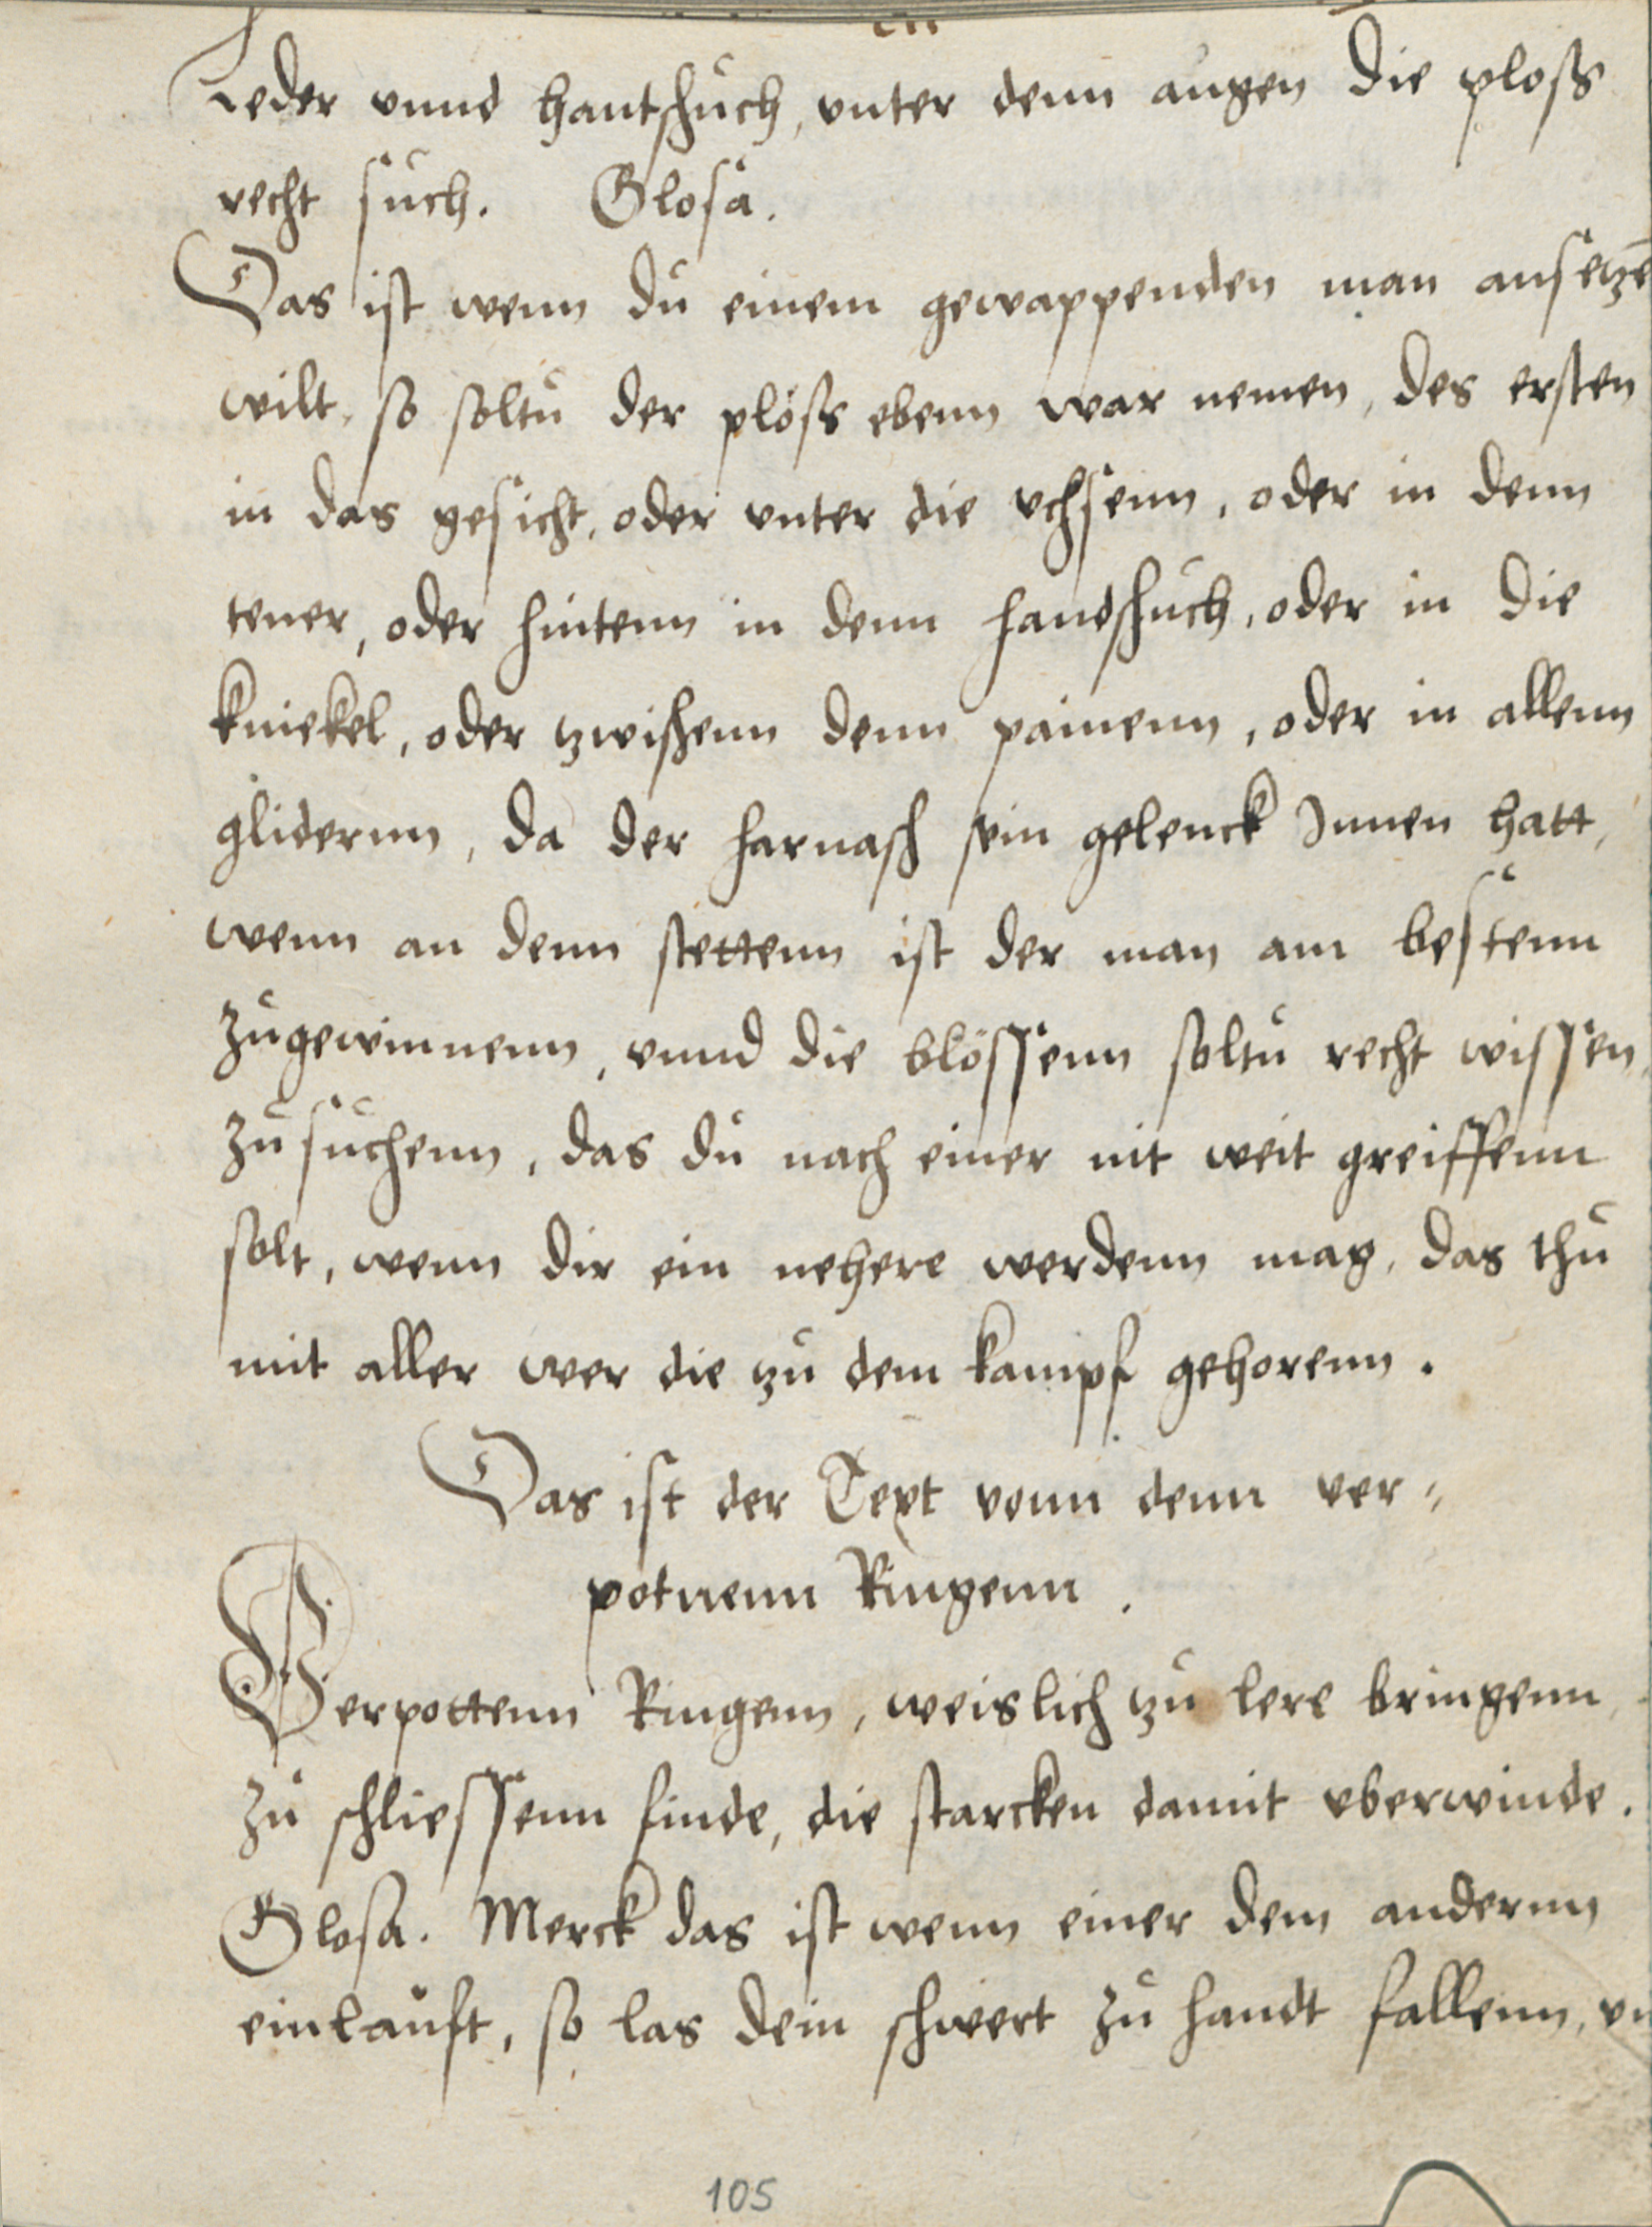 Leder vnnd hantschuch, vnter denn augen die ploss
recht such. Glosa.
Das ist wenn du einem gewappenden man ansetzē
wilt, so soltu der plöss ebenn war nemen, des ersten
in das gesicht, oder vnter die vchsenn, oder in denn
tener, oder hintenn in denn handschuch, oder in die
kniekel, oder zwischenn denn painenn, oder in allenn
glidernn, da der harnasch sein gelenck Innen hatt,
wenn an denn stettenn ist der man am bestenn
zugewinnenn, vnnd die blössenn soltu recht wissen,
zu suchenn, das du nach einer nit weit greiffenn
solt, wenn dir ein nehere werdenn mag, das thu
mit aller wer die zu dem kampf gehorenn.
Das ist der Text vonn denn ver⸗
potnenn Ringenn.
Verpottenn Ringenn, weislich zu lere bringenn,
zu schliessenn finde, die starcken damit vberwinde.
Glosa. Merck das ist wenn einer dem andernn
einlauft, so las dein schwert zu handt fallenn, vn
105